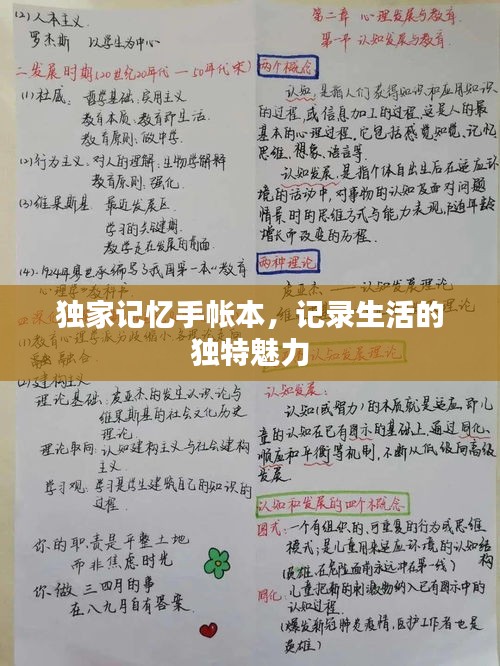 (2) 人本主义.
罗杰斯 以学生为中心
二.发展时期(20世纪20年代 — 50年代末)
(1) 杜威: 哲学基础: 实用主义
教育本质: 教育即生活.
教育原则: 做中学.
(2) 行为主义: 对人的理解: 生物学解释
教育原则: 强化.
(3) 维果斯基: 最近发展区.
学习的关键期.
教学走在发展的前面.
(4). 1924年廖世承编写了我国第一本"教育
独家记忆手帐本，记录生活的
独特魅力
(2) 建构主义:
理论基础: 皮亚杰的发生认识论与
维果斯基的社会文化历史
理论.
理论取向: 认知建构主义与社会建构
主义.
学习观: 学习是学生建筑自己的知识的
过程.
你的职责是平整土地
而非焦虑时光
你做 三四月的事
在八九月自有答案.
第二章 心理发展与教育.
第一节 认知发展与教育.
两个概念
认知, 是指人们获得知识和应用知识
的过程, 或信息加工的过程, 这是人的最
基本的心理过程, 它包括感觉知觉、记忆
思维、想象、语言等.
认知发展, 是指个体自出生后在适应环
境的活动中, 对事物的认知及面对问题
情景时的思维方式与能力表现, 随年龄
增长而改变的历程.
两种理论
皮亚杰 — 认知发展理论
认知发展理论
认知(或智力)的本质就是适应, 即儿
童的认知在已有图示的基础上, 通过同化、
顺应和平衡等机制, 不断从低级向高级
发展.
认知和发展的四个概念
图式: 一个有组织的、可重复的行为或思维
模式; 是儿童用来适应环境的认知结
构
(英雄, 在危险面前永远冲在第一线)
同化: 儿童把新的刺激物纳入已有图示中的
认知过程.
(爆发新冠肺炎疫情, 医护工作者也是
英雄)